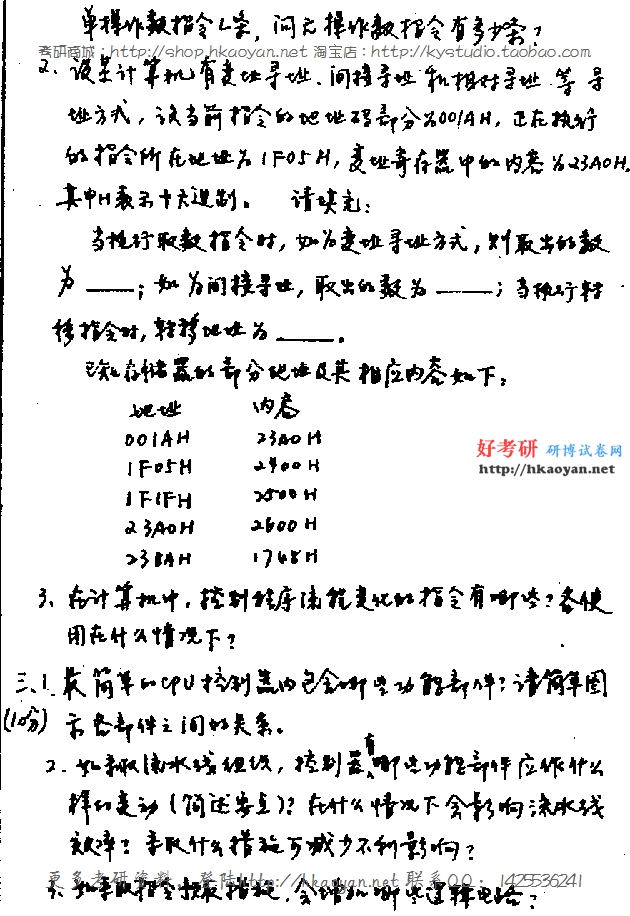 单操作数指令L条，问无操作数指令有多少条？
考研商城：http://shop.hkaoyan.com 淘宝店：http://kystudio.taobao.com
2、设某计算机有变址寻址、间接寻址和相对寻址等寻
址方式，设当前指令的地址码部分为001AH，正在执行
的指令所在地址为1F05H，变址寄存器中的内容为23A0H。
其中H表示十六进制。 请填充：
当执行取数指令时，如为变址寻址方式，则取出的数
为____；如为间接寻址，取出的数为____；当执行转
移指令时，转移地址为____。
已知存储器的部分地址及其相应内容如下：
地址 内容
001AH 23A0H
1F05H 2400H
好考研 研博试卷网
http://hkaoyan.net
1F1FH 2500H
23A0H 2600H
23BAH 1748H
3、在计算机中，控制程序流程变化的指令有哪些？各使
用在什么情况下？
三、1、最简单的CPU控制器内包含哪些功能部件？请简单图
(10分) 示各部件之间的关系。
2、如采取流水线组织，控制器有哪些功能部件应作什么
样的变动（简述要点）？在什么情况下会影响流水线
效率？采取什么措施可减少不利影响？
更多考研资料，登陆http://hkaoyan.net 联系QQ：1425536241
3、如采取指令预取措施，会增加哪些逻辑电路？